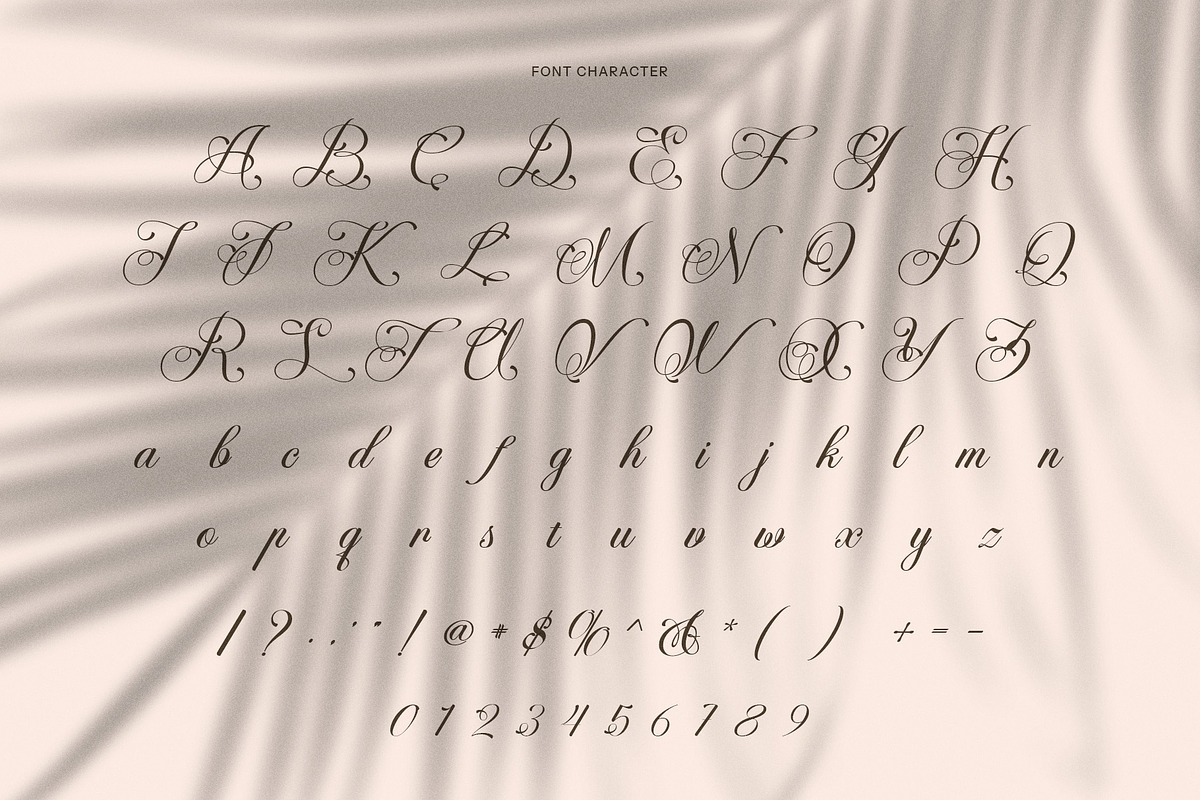 FONT CHARACTER
A B C D E F G H
I J K L M N O P Q
R S T U V W X Y Z
a b c d e f g h i j k l m n
o p q r s t u v w x y z
/ ? . , : ; " ! @ # $ % ^ & * ( ) + = -
0 1 2 3 4 5 6 7 8 9